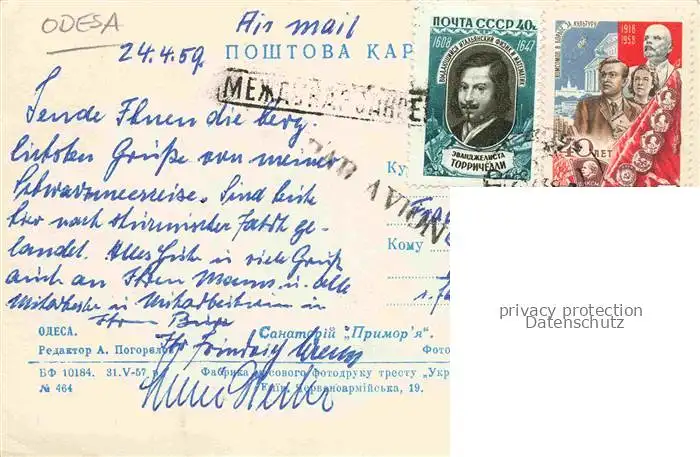 ODESA
Air mail
24.4.59
ПОШТОВА КАР
ПОЧТА СССР 40
1608 1647
ЭВАНДЖЕЛИСТА
ТОРРИЧЕЛЛИ
1918
1958
ЛЕТ
PAR AVION
Sende Ihnen die herz-
lichsten Grüße von meiner
Schwarzmeerreise. Sind heute
hier nach stürmischer Fahrt ge-
landet. Alles Gute u. viele Grüße
auch an Ihren Mann u. alle
Mitarbeiter u. Mitarbeiterinnen in
Ihrem Büro
Ihr Friedrich
Ку
Кому
ОДЕСА. Санаторій „Примор'я".
Редактор А. Погорєлов Фото
БФ 10184. 31.V-57 р. Фабрика масового фотодруку тресту „Укр
№ 464 Київ, Червоноармійська, 19.
privacy protection
Datenschutz